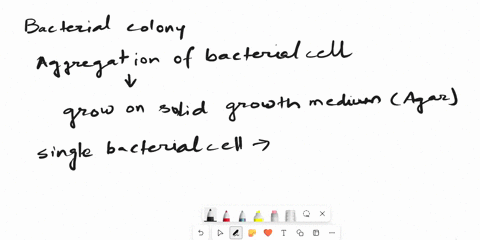 Bacterial colony
Aggregation of bacterial cell
↓
grow on solid growth medium (Agar)
single bacterial cell →